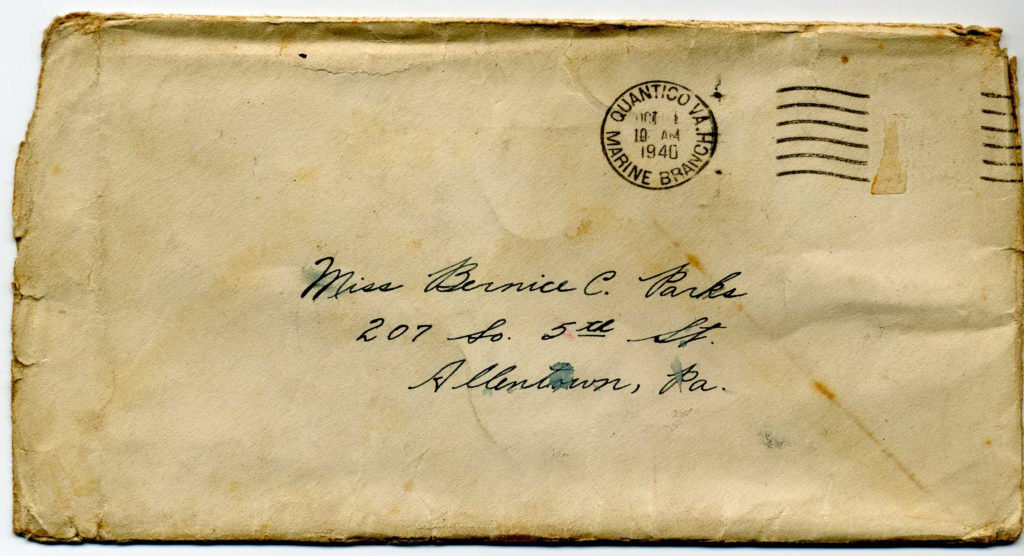 QUANTICO VA. HC
OCT 1
10 AM
1940
MARINE BRANCH
Miss Bernice C. Parks
207 So. 5th St.
Allentown, Pa.